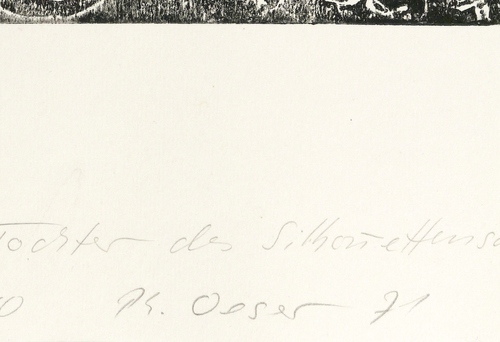 Tochter des Silhouettensc
0 Ph. Oeser 71